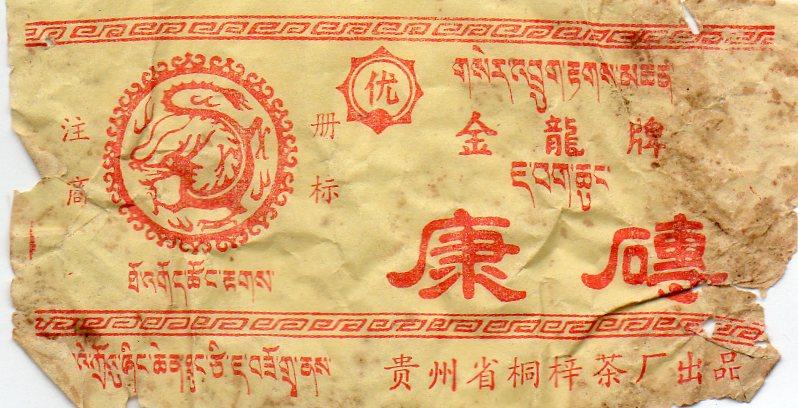 优
གསེར་འབྲུག་རྟགས་མཚན
注 册
金龍牌
ཇ་བག་ཆུང
商 标
康磚
ཐོ་འགོད་ཚོང་རྟགས
贵州省桐梓茶厂出品